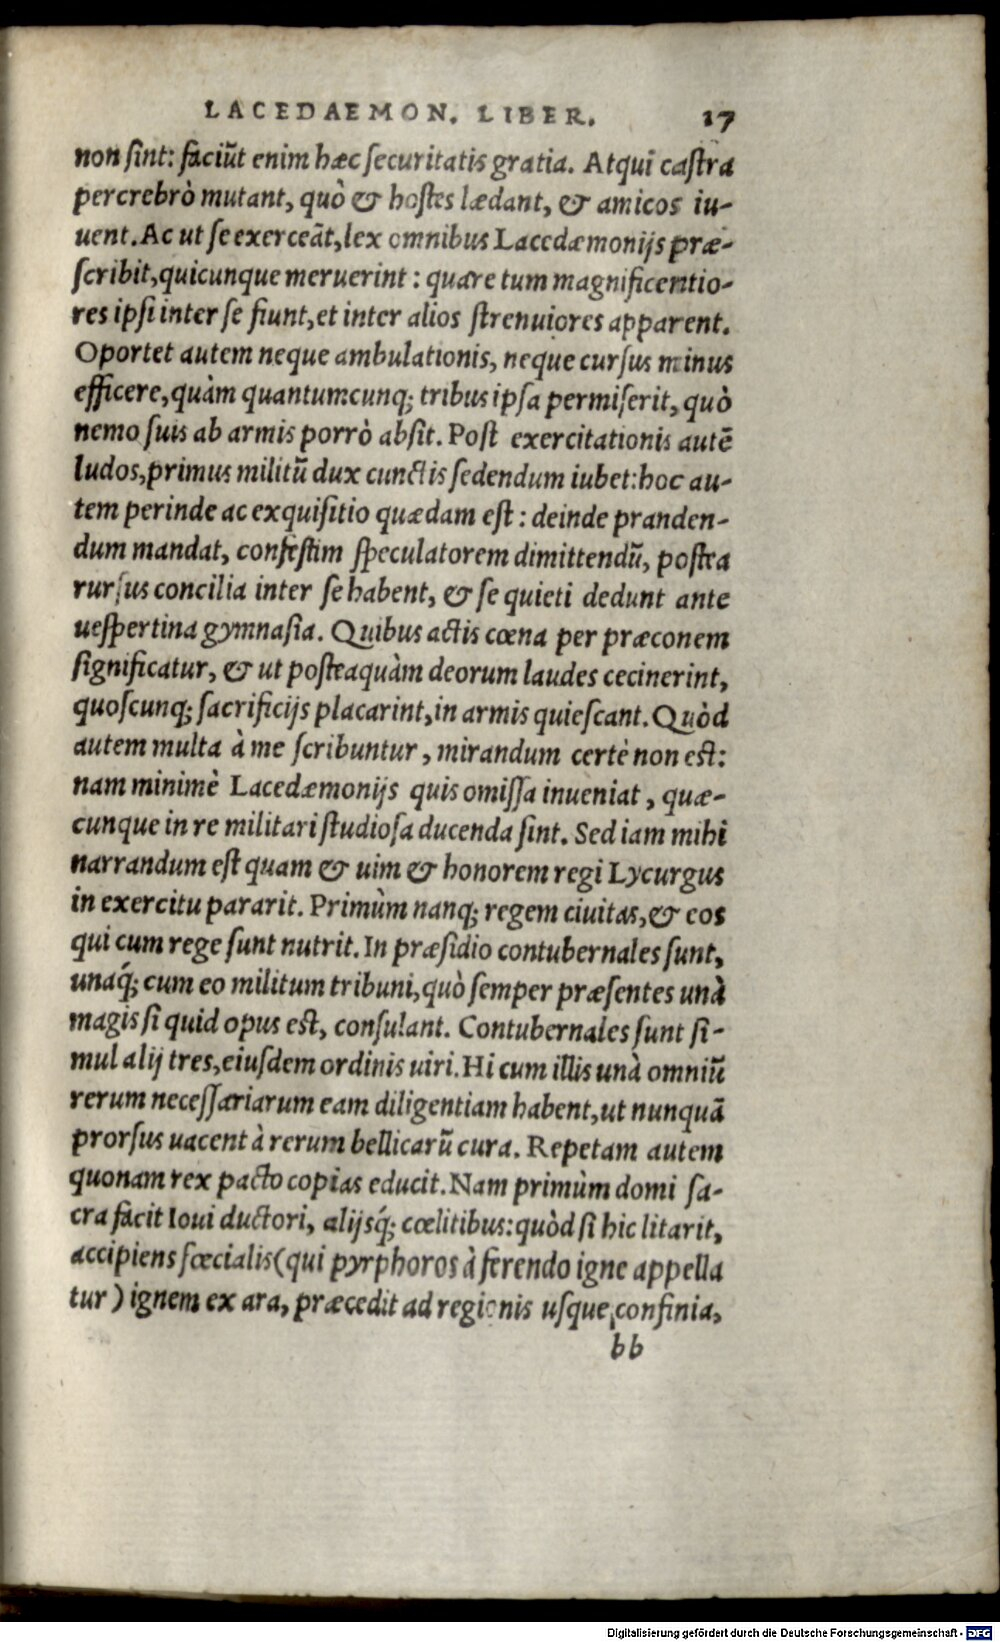 LACEDAEMON. LIBER. 17
non ſint: faciūt enim hæc ſecuritatis gratia. Atqui caſtra
percrebrò mutant, quò & hoſtes lædant, & amicos iu-
uent. Ac ut ſe exerceāt, lex omnibus Lacedæmonijs præ-
ſcribit, quicunque meruerint: quare tum magnificentio-
res ipſi inter ſe fiunt, et inter alios ſtrenuiores apparent.
Oportet autem neque ambulationis, neque curſus minus
efficere, quàm quantumcunq; tribus ipſa permiſerit, quò
nemo ſuis ab armis porrò abſit. Poſt exercitationis autē
ludos, primus militū dux cunctis ſedendum iubet: hoc au-
tem perinde ac exquiſitio quædam eſt: deinde pranden-
dum mandat, confeſtim ſpeculatorem dimittendū, poſtea
rurſus concilia inter ſe habent, & ſe quieti dedunt ante
ueſpertina gymnaſia. Quibus actis cœna per præconem
ſignificatur, & ut poſteaquàm deorum laudes cecinerint,
quoſcunq; ſacrificijs placarint, in armis quieſcant. Quòd
autem multa à me ſcribuntur, mirandum certè non eſt:
nam minimè Lacedæmonijs quis omiſſa inueniat, quæ-
cunque in re militari ſtudioſa ducenda ſint. Sed iam mihi
narrandum eſt quam & uim & honorem regi Lycurgus
in exercitu pararit. Primùm nanq; regem ciuitas, & eos
qui cum rege ſunt nutrit. In præſidio contubernales ſunt,
unaq́; cum eo militum tribuni, quò ſemper præſentes unà
magis ſi quid opus eſt, conſulant. Contubernales ſunt ſi-
mul alij tres, eiuſdem ordinis uiri. Hi cum illis unà omniū
rerum neceſſariarum eam diligentiam habent, ut nunquā
prorſus uacent à rerum bellicarū cura. Repetam autem
quonam rex pacto copias educit. Nam primùm domi ſa-
cra facit Ioui ductori, alijsq́; cœlitibus: quòd ſi hic litarit,
accipiens fœcialis (qui pyrphoros à ferendo igne appella
tur) ignem ex ara, præcedit ad regionis uſque confinia,
bb
Digitalisierung gefördert durch die Deutsche Forschungsgemeinschaft - DFG